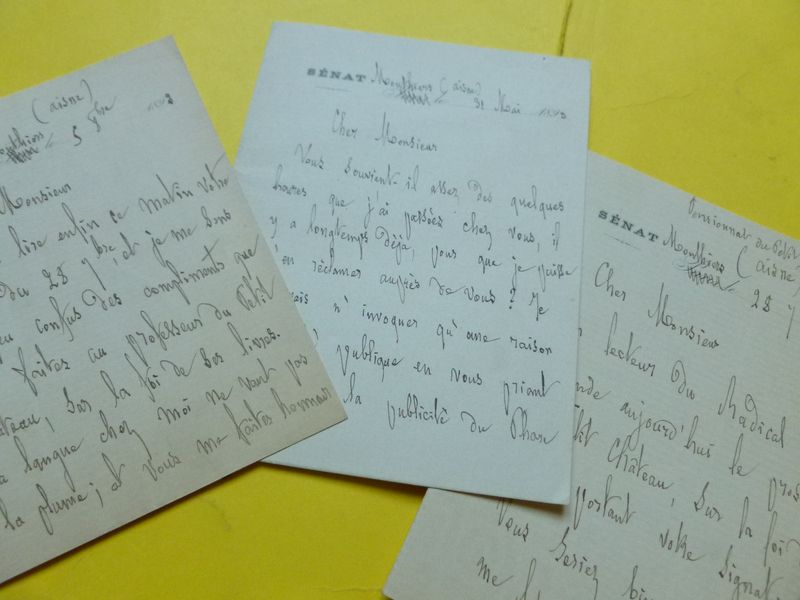 (aisne)
5 9bre
Monsieur
lire enfin ce matin votre
du 28 7bre, et je me sens
confus des compliments que
faites au professeur du Petit
sur la foi de ses livres.
langue chez moi ne vaut pas
la plume; et vous me faites
SÉNAT Monthiers (aisne)
31 Mai
Cher Monsieur
Vous souvient-il assez des quelques
heures que j'ai passées chez vous, il
y a longtemps déjà, pour que je puisse
m'en réclamer auprès de vous? Je
n'invoquer qu'une raison
publique en vous priant
la publicité du Phare
Pensionnat du Petit
SÉNAT Monthiers (aisne)
28 7
Cher Monsieur
lecteur du Radical
aujourd'hui le
Château, sur la foi
portant votre
Vous seriez
me